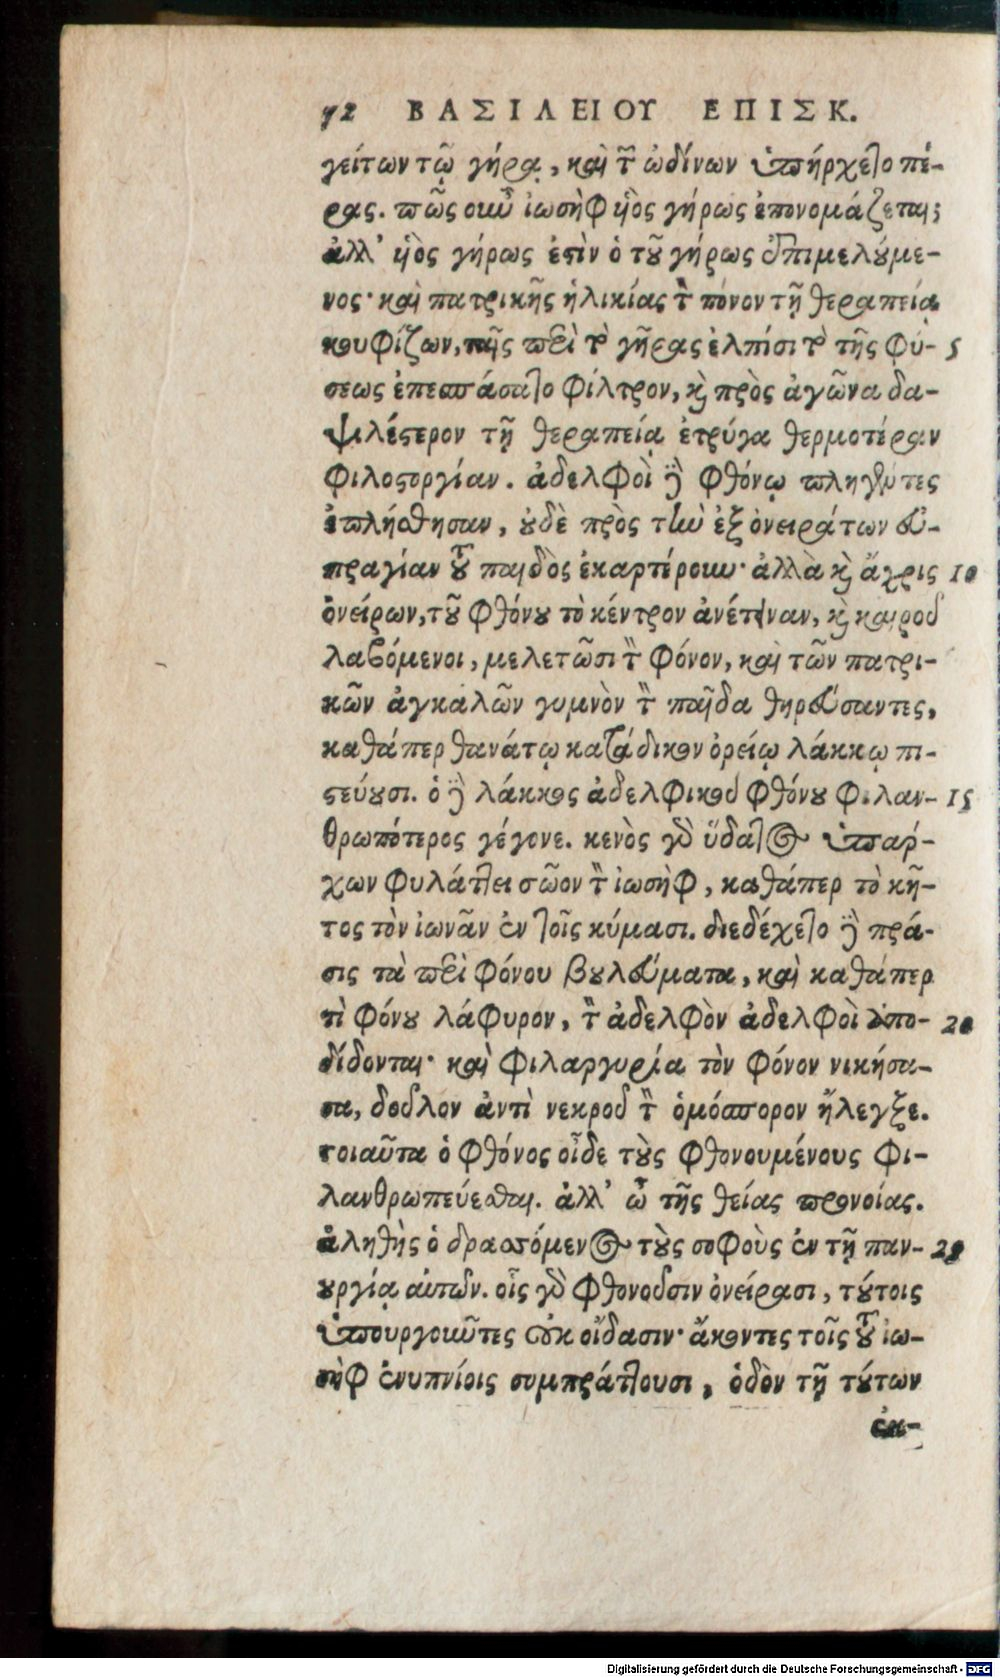 72 ΒΑΣΙΛΕΙΟΥ ΕΠΙΣΚ.
γείτων τῷ γήρᾳ, καὶ τῶν ὠδίνων ὑπήρχετο πέ-
ρας. πῶς οὖν ἰωσὴφ υἱὸς γήρως ἐπονομάζεται;
ἀλλ' υἱὸς γήρως ἐστὶν ὁ τοῦ γήρως ἐπιμελούμε-
νος· καὶ πατρικῆς ἡλικίας τὸν πόνον τῇ θεραπείᾳ
κουφίζων, ταῖς περὶ τὸ γῆρας ἐλπίσι τὸ τῆς φύ- 5
σεως ἐπεσπάσατο φίλτρον, καὶ πρὸς ἀγῶνα δα-
ψιλέστερον τῇ θεραπείᾳ ἐτρύγα θερμοτέραν
φιλοστοργίαν. ἀδελφοὶ δὲ φθόνῳ πληγέντες
ἐπλήσθησαν, οὐδὲ πρὸς τὴν ἐξ ὀνειράτων εὐ-
πραγίαν τοῦ παιδὸς ἐκαρτέρουν· ἀλλὰ καὶ ἄχρις 10
ὀνείρων, τοῦ φθόνου τὸ κέντρον ἀνέτειναν, καὶ καιροῦ
λαβόμενοι, μελετῶσι τὸν φόνον, καὶ τῶν πατρι-
κῶν ἀγκαλῶν γυμνὸν τὸν παῖδα θηρεύσαντες,
καθάπερ θανάτῳ κατάδικον ὀρείῳ λάκκῳ πι-
στεύουσι. ὁ δὲ λάκκος ἀδελφικοῦ φθόνου φιλαν- 15
θρωπότερος γέγονε. κενὸς γὰρ ὕδατος ὑπάρ-
χων φυλάττει σῶον τὸν ἰωσὴφ, καθάπερ τὸ κῆ-
τος τὸν ἰωνᾶν ἐν τοῖς κύμασι. διεδέχετο δὲ πρά-
σις τὰ περὶ φόνου βουλεύματα, καὶ καθάπερ
τὶ φόνου λάφυρον, τὸν ἀδελφὸν ἀδελφοὶ ἀπο- 20
δίδονται· καὶ φιλαργυρία τὸν φόνον νικήσα-
σα, δοῦλον ἀντὶ νεκροῦ τὸν ὁμόσπορον ἤλεγξε.
τοιαῦτα ὁ φθόνος οἶδε τοὺς φθονουμένους φι-
λανθρωπεύεσθαι. ἀλλ' ὢ τῆς θείας προνοίας.
ἀληθὴς ὁ δρασσόμενος τοὺς σοφοὺς ἐν τῇ παν- 25
ουργίᾳ αὐτῶν. οἷς γὰρ φθονοῦσιν ὀνείρασι, τούτοις
ὑπουργοῦντες οὐκ οἴδασιν· ἄκοντες τοῖς τοῦ ἰω-
σὴφ ἐνυπνίοις συμπράττουσι, ὁδὸν τῇ τούτων
ἐκ-
Digitalisierung gefördert durch die Deutsche Forschungsgemeinschaft - DFG